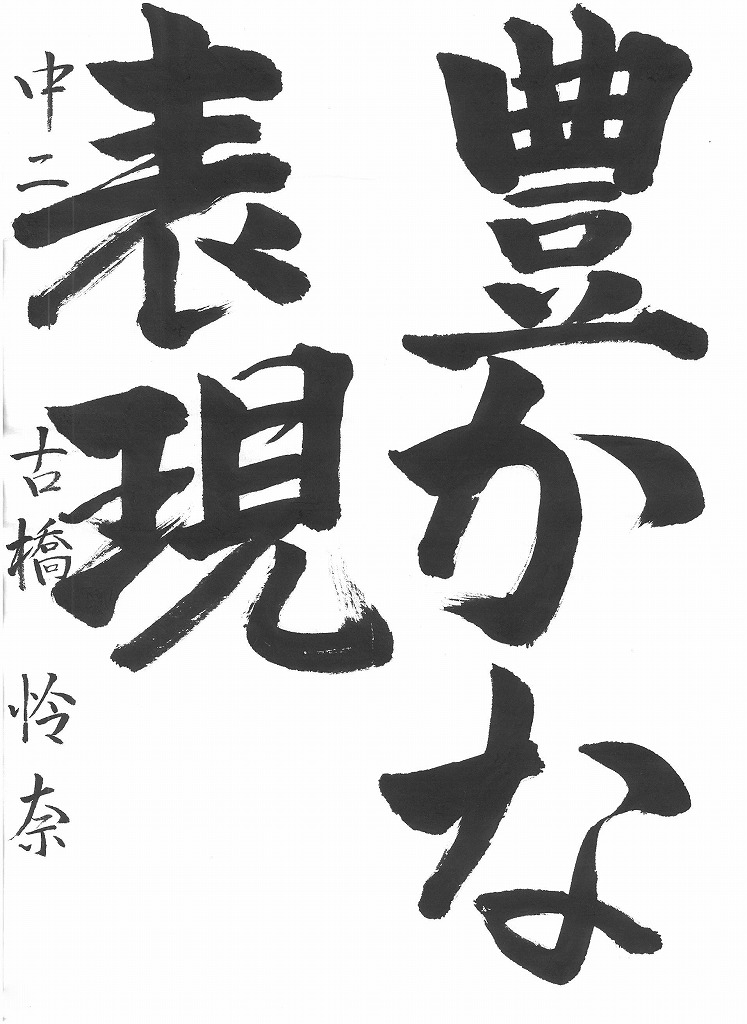 豊かな
表現
中二 古橋 怜奈